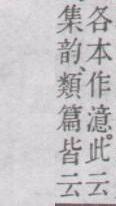 各本作澺。此云
集韵、類篇皆云